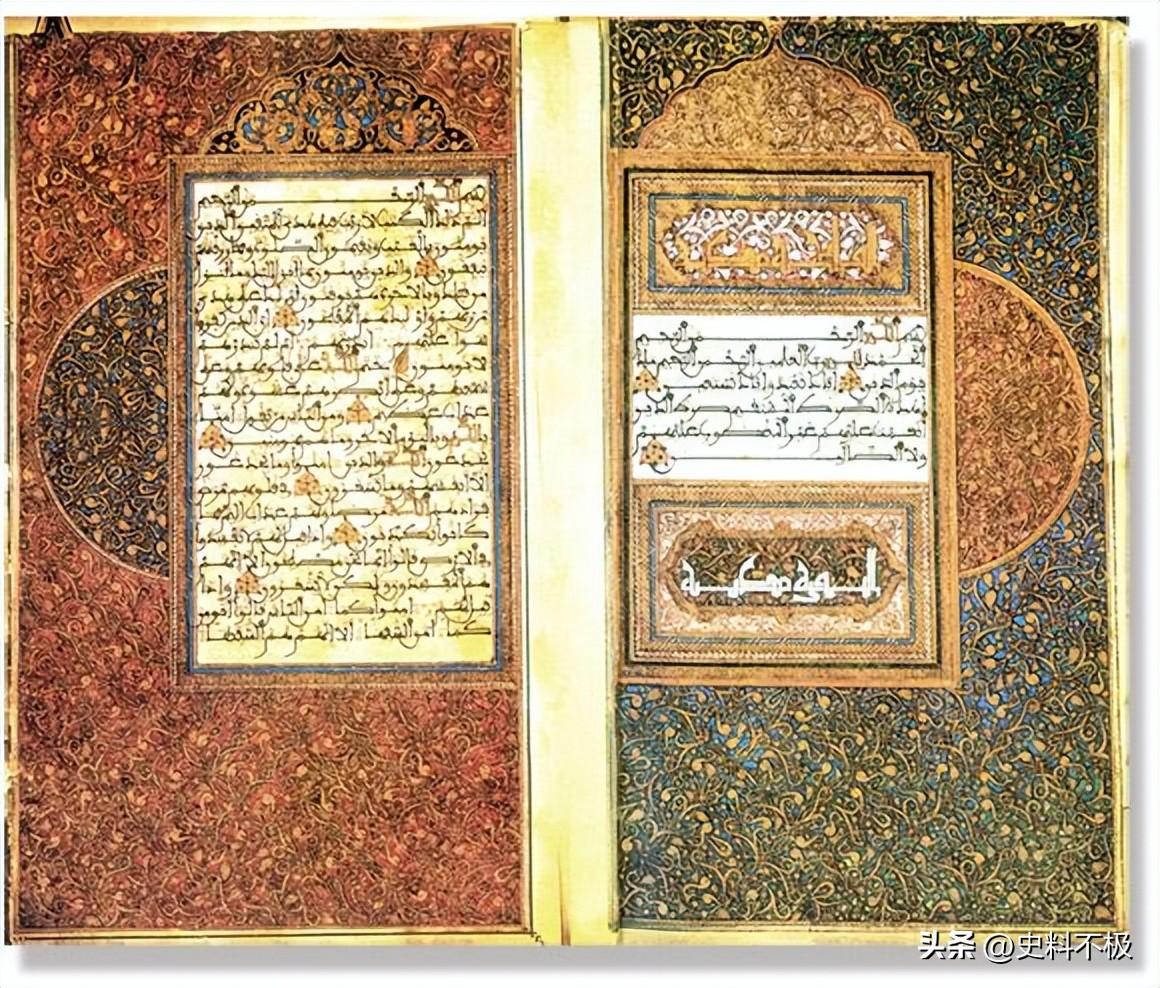 بسم الله الرحمن الرحيم
الحمد لله رب العالمين الرحمن الرحيم ملك
يوم الدين اياك نعبد واياك نستعين
اهدنا الصراط المستقيم صراط الذين
انعمت عليهم غير المغضوب عليهم
ولا الضالين
مكية
بسم الله الرحمن الرحيم
الم ذلك الكتب لا ريب فيه هدى للمتقين الذين
يومنون بالغيب ويقيمون الصلوة ومما رزقنهم
ينفقون والذين يومنون بما انزل اليك وما انزل
من قبلك وبالاخرة هم يوقنون اوليك على هدى
من ربهم واوليك هم المفلحون ان الذين كفروا
سوا عليهم انذرتهم ام لم تنذرهم
لا يومنون ختم الله على قلوبهم وعلى
سمعهم وعلى ابصرهم غشوة ولهم
عذاب عظيم ومن الناس من يقول امنا
بالله وباليوم الاخر وما هم بمومنين
يخدعون الله والذين امنوا وما يخدعون
الا انفسهم وما يشعرون في قلوبهم مرض
فزادهم الله مرضا ولهم عذاب اليم بما
كانوا يكذبون واذا قيل لهم لا تفسدوا
في الارض قالوا انما نحن مصلحون الا انهم
هم المفسدون ولكن لا يشعرون واذا
قيل لهم امنوا كما امن الناس قالوا انومن
كما امن السفها الا انهم هم السفها
头条 @史料不极